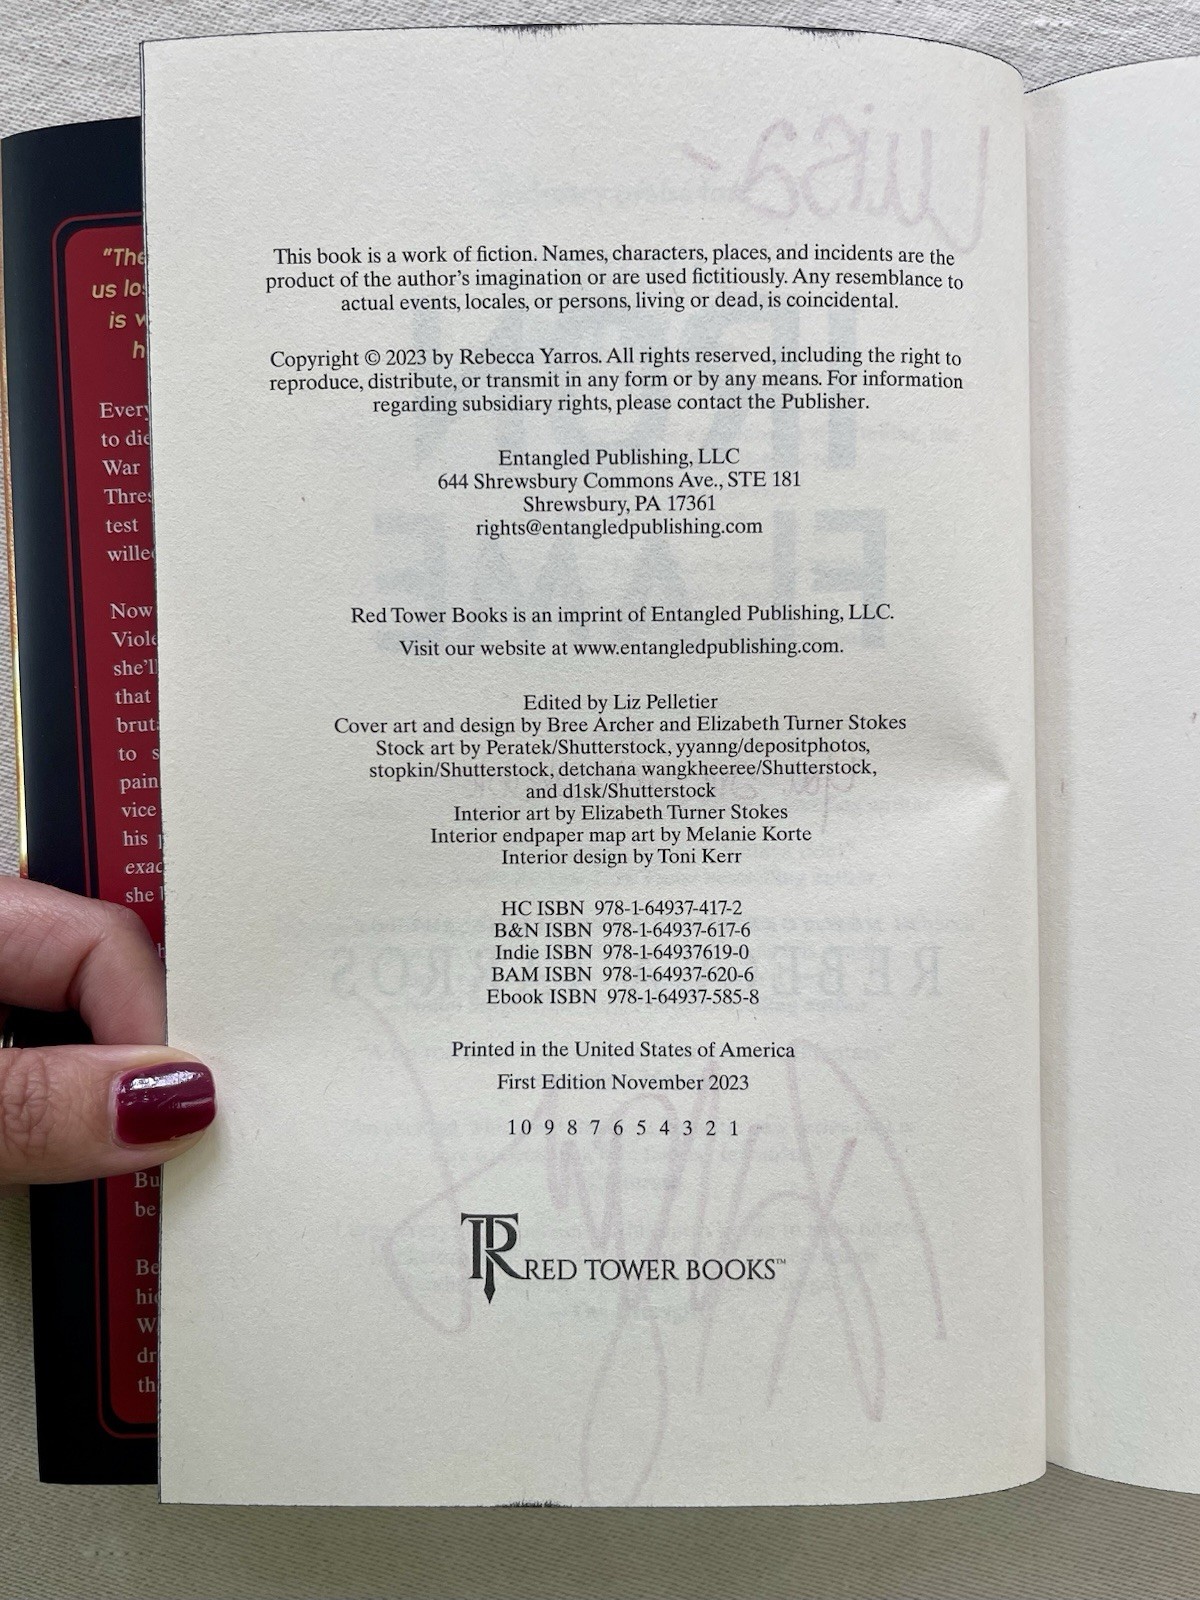 This book is a work of fiction. Names, characters, places, and incidents are the
product of the author's imagination or are used fictitiously. Any resemblance to
actual events, locales, or persons, living or dead, is coincidental.
Copyright © 2023 by Rebecca Yarros. All rights reserved, including the right to
reproduce, distribute, or transmit in any form or by any means. For information
regarding subsidiary rights, please contact the Publisher.
Entangled Publishing, LLC
644 Shrewsbury Commons Ave., STE 181
Shrewsbury, PA 17361
rights@entangledpublishing.com
Red Tower Books is an imprint of Entangled Publishing, LLC.
Visit our website at www.entangledpublishing.com.
Edited by Liz Pelletier
Cover art and design by Bree Archer and Elizabeth Turner Stokes
Stock art by Peratek/Shutterstock, yyanng/depositphotos,
stopkin/Shutterstock, detchana wangkheeree/Shutterstock,
and d1sk/Shutterstock
Interior art by Elizabeth Turner Stokes
Interior endpaper map art by Melanie Korte
Interior design by Toni Kerr
HC ISBN 978-1-64937-417-2
B&N ISBN 978-1-64937-617-6
Indie ISBN 978-1-64937619-0
BAM ISBN 978-1-64937-620-6
Ebook ISBN 978-1-64937-585-8
Printed in the United States of America
First Edition November 2023
10 9 8 7 6 5 4 3 2 1
TR RED TOWER BOOKS™
Luisa-
IRON
FLAME
REBECCA YARROS
"The
us
is
Every
to die
War
test
Now
she'll
that
to
pain
vice
his
she